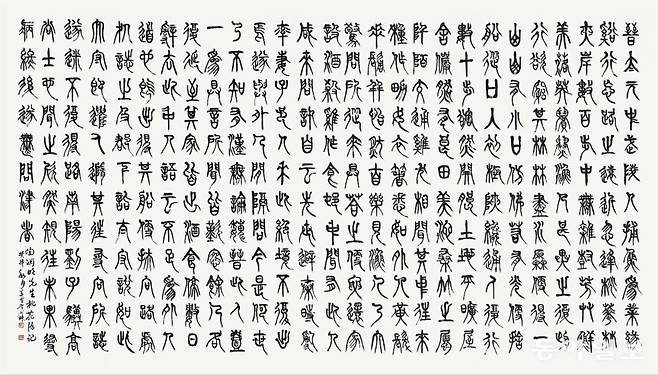 晉太元中武陵人捕魚爲業緣
谿行忘路之遠近忽逢桃花林
夾岸數百步中無雜樹芳草鮮
美落英繽紛漁人甚異之復前
行欲窮其林林盡水源便得一
山山有小口彷彿若有光便舍
船從口入初極狹纔通人復行
數十步豁然開朗土地平曠屋
舍儼然有良田美池桑竹之屬
阡陌交通雞犬相聞其中往來
種作男女衣著悉如外人黃髮
垂髫並怡然自樂見漁人乃大
驚問所從來具答之便要還家
設酒殺雞作食村中聞有此人
咸來問訊自云先世避秦時亂
率妻子邑人來此絕境不復出
焉遂與外人間隔問今是何世
乃不知有漢無論魏晉此人一
一爲具言所聞皆歎惋餘人各
復延至其家皆出酒食停數日
辭去此中人語云不足爲外人
道也既出得其船便扶向路處
處誌之及郡下詣太守說如此
太守即遣人隨其往尋向所誌
遂迷不復得路南陽劉子驥高
尚士也聞之欣然規往未果尋
病終後遂無問津者
陶淵明先生桃花源記